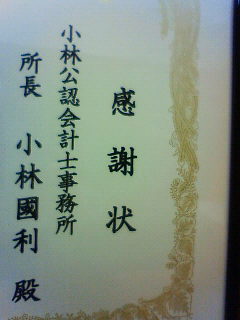 感謝状
小林公認会計士事務所
所長 小林國利 殿